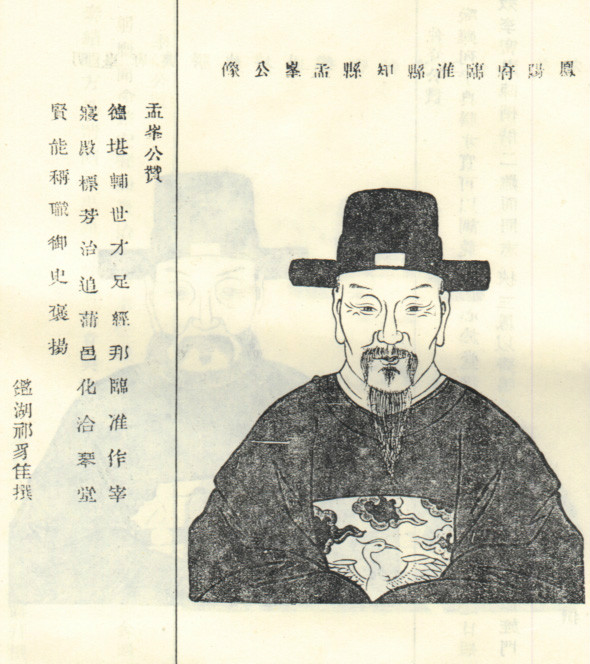 鳳陽府臨淮縣知縣孟峯公像
孟峯公贊
德堪輔世才足經邦臨淮作宰
寢殿標芳治追蒲邑化洽琴堂
賢能稱職御史褒揚
鑑湖祁豸佳撰